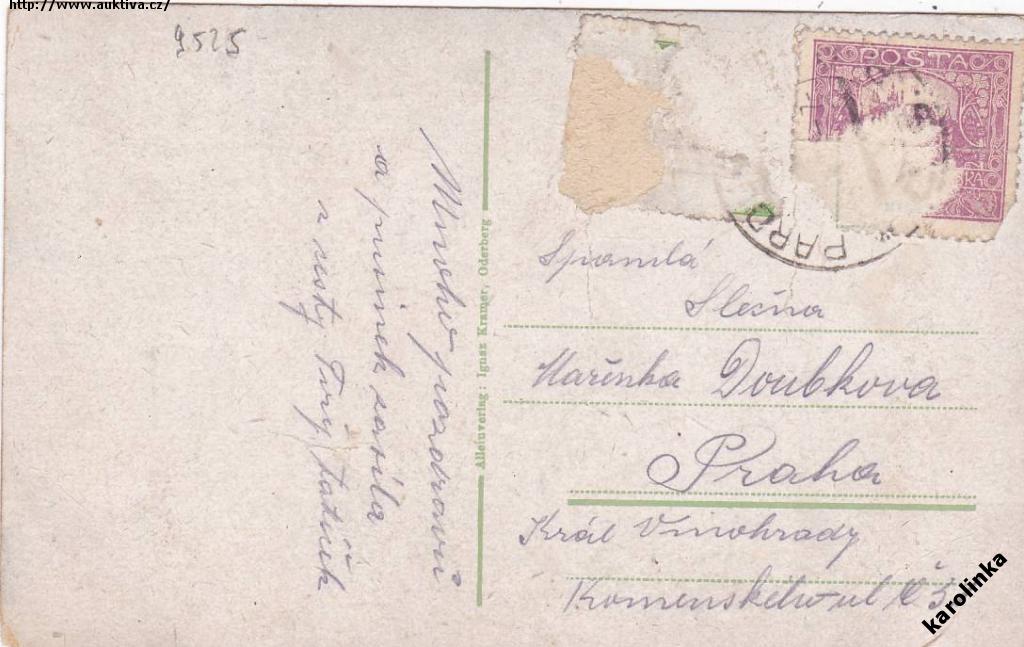 http://www.auktiva.cz/
9525
POŠTA
PARD
Mnoho pozdravů
a pominek zasílá
z cesty Tvůj tatínek
Alleinverlag: Ignaz Kramer, Oderberg
Spanilá
Slečna
Mařenka Doubkova
Praha
Král Vinohrady
Komenského ul č 3
karolinka